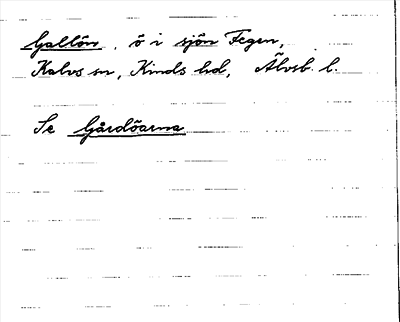 Gallön, ö i sjön Fegen,
Kalvs sn, Kinds hd, Älvsb. l.
Se Gårdöarna